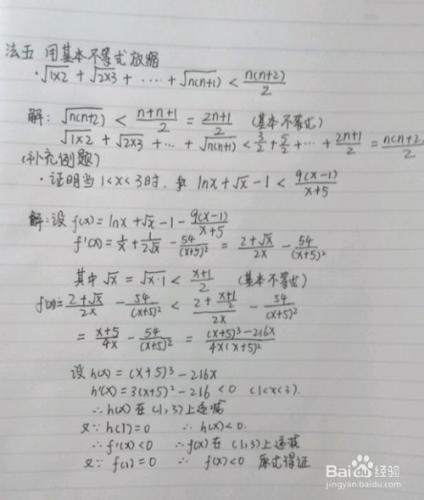 法五 用基本不等式放缩
·√1×2 + √2×3 + ···· + √n(n+1) < n(n+2)/2
解: √n(n+2) < (n+n+1)/2 = (2n+1)/2 (基本不等式)
√1×2 + √2×3 + ··· + √n(n+1) < 3/2 + 5/2 + ··· + (2n+1)/2 = n(n+2)/2
(补充例题)
·证明当1<x<3时, lnx+√x-1 < 9(x-1)/(x+5)
解:设f(x)=lnx+√x-1-9(x-1)/(x+5)
f'(x)=1/x+1/(2√x)-54/(x+5)² = (2+√x)/2x - 54/(x+5)²
其中√x = √x·1 < (x+1)/2 (基本不等式)
f'(x)=(2+√x)/2x - 54/(x+5)² < (2+(x+1)/2)/2x - 54/(x+5)²
= (x+5)/4x - 54/(x+5)² = ((x+5)³-216x)/(4x(x+5)²)
设 h(x) = (x+5)³-216x
h'(x)=3(x+5)²-216<0 (1<x<3).
∴h(x)在(1,3)上递减
又∵h(1)=0 ∴h(x)<0.
∴f'(x)<0 ∴f(x)在(1,3)上递减
又∵f(1)=0 ∴f(x)<0 原式得证
Bai 百度经验
jingyan.baidu.com